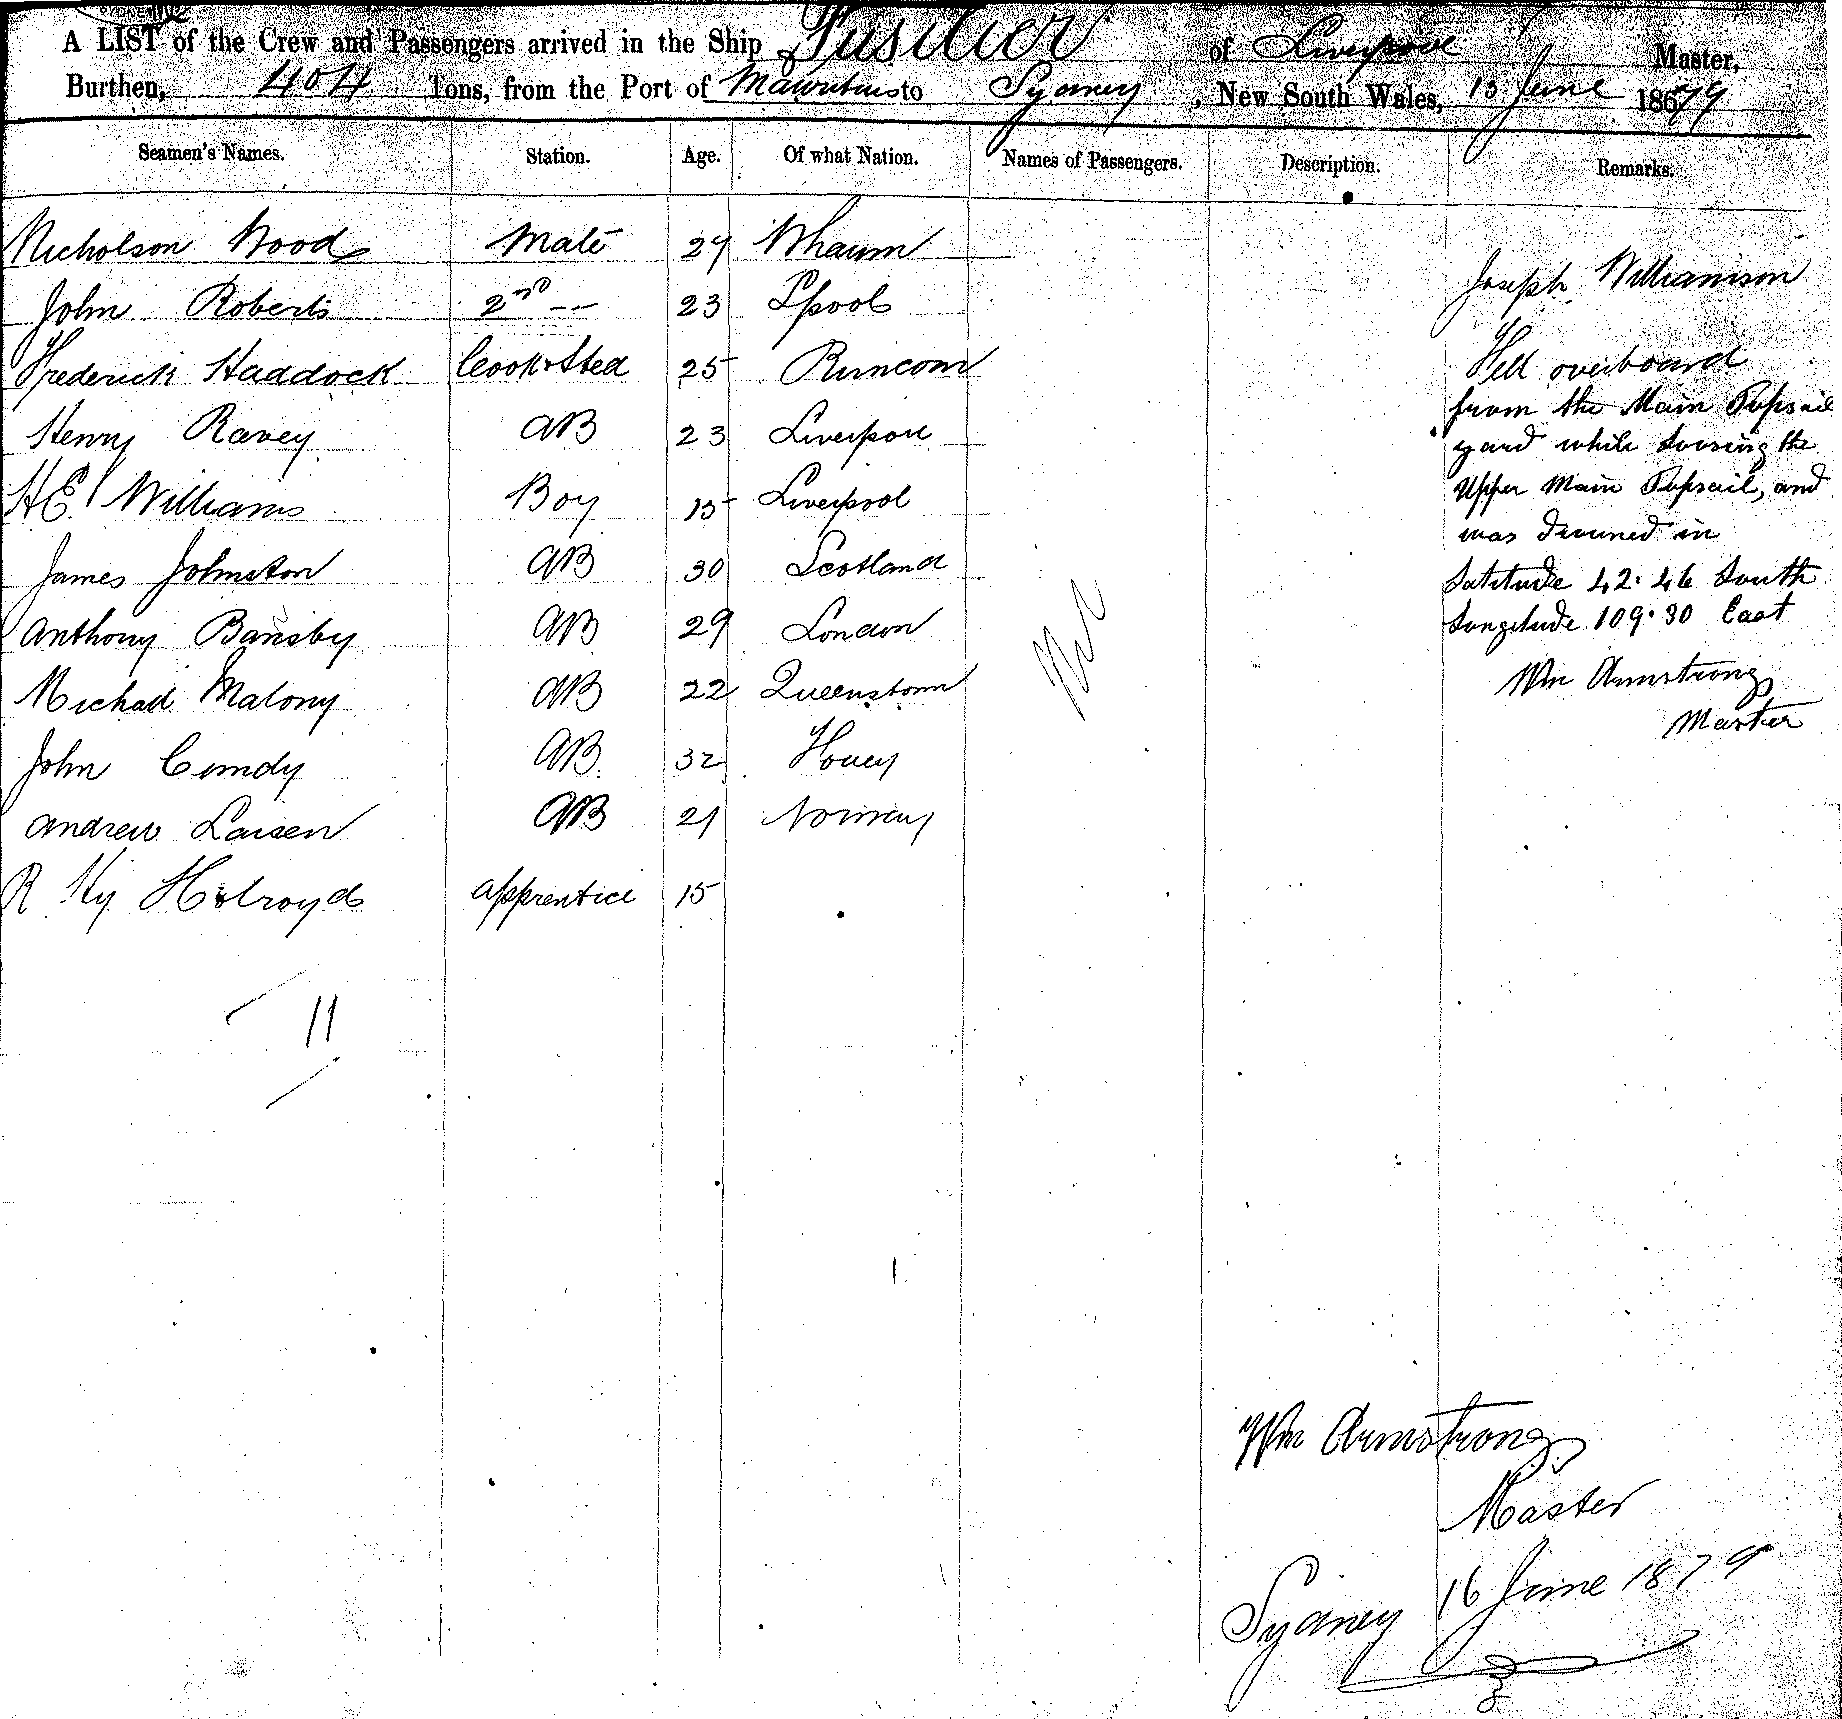 A LIST of the Crew and Passengers arrived in the Ship Fusilier of Liverpool Master,
Burthen, 404 Tons, from the Port of Mauritius to Sydney, New South Wales, 13 June 1879
Seamen's Names. Station. Age. Of what Nation. Names of Passengers. Description. Remarks.
Nicholson Wood Mate 27
John Roberts 2nd — 23 Lpool
Frederick Haddock Cook & Sted 25 Runcorn
Henry Ravey AB 23 Liverpool
H E Williams Boy 15 Liverpool
James Johnston AB 30 Scotland
Anthony Bansby AB 29 London
Michael Malony AB 22 Queenstown
John Cundy AB 32
Andrew Larsen AB 21 Norway
R Hy Holroyd Apprentice 15
11
Nil
Joseph Williamson
Fell overboard
from the Main Topsail
yard while loosing the
Upper Main Topsail, and
was drowned in
Latitude 42.46 South
Longitude 109.30 East
Wm Armstrong
Master
Wm Armstrong
Master
Sydney 16 June 1879